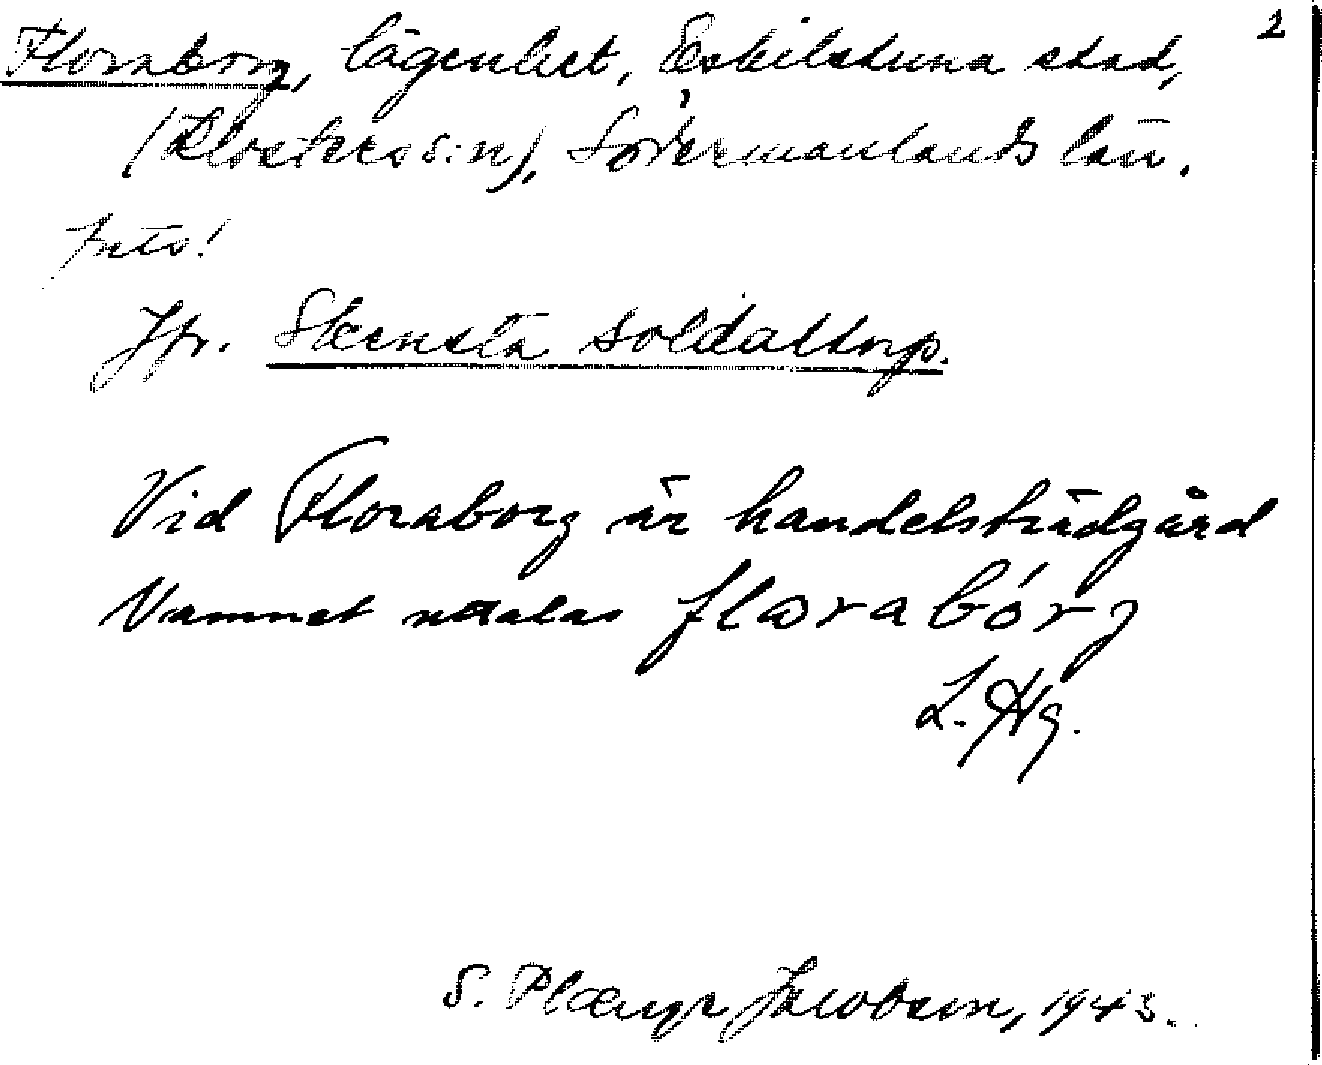 2
Floraborg, lägenhet, Eskilstuna stad,
(Klosters s:n), Södermanlands län.
Jfr. Stensta soldattorp.
Vid Floraborg är handelsträdgård
Namnet uttalas
L. Hg.
S. Jacobson, 1943.